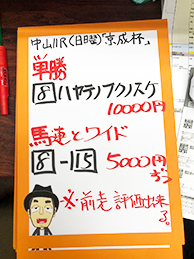 中山11R(日曜)「京成杯」
単勝
8 ハヤテノフクノスケ
10000円
馬連とワイド
8-115 5000円
ズン
※前走評価出来
る。